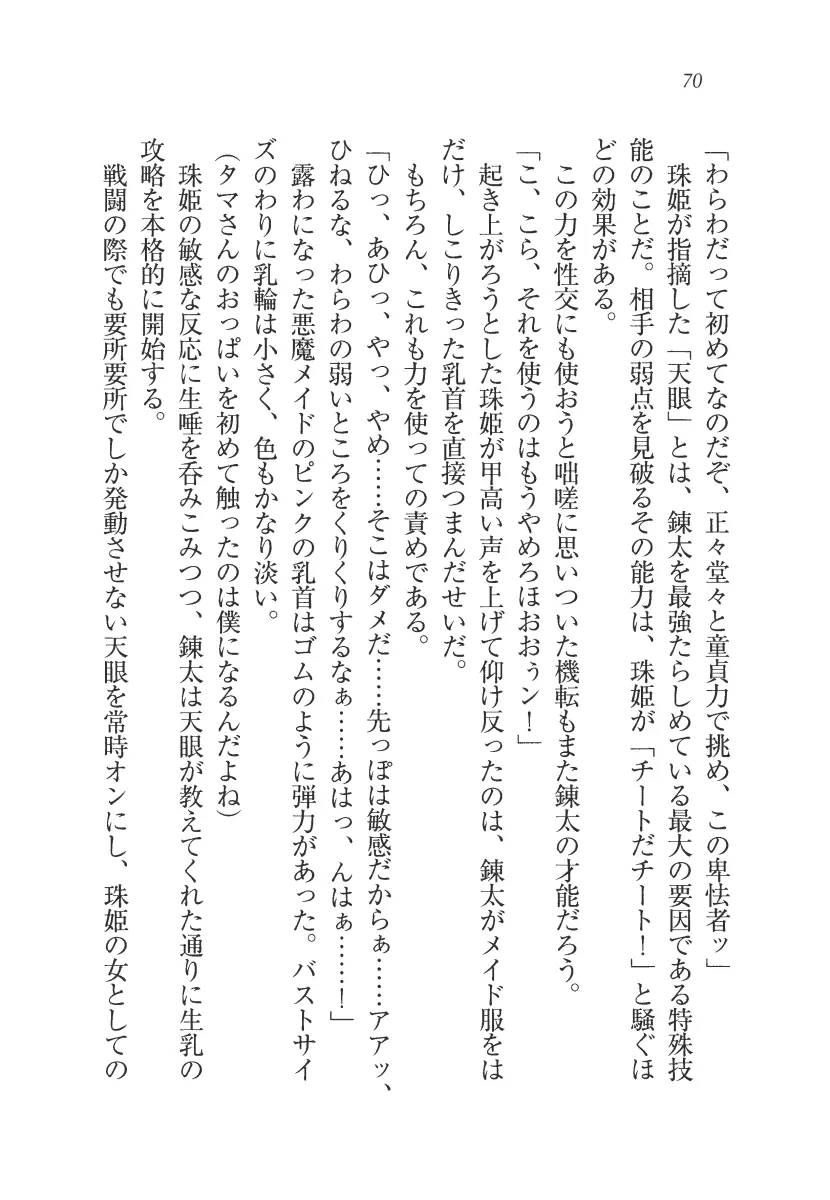 70
「わらわだって初めてなのだぞ、正々堂々と童貞力で挑め、この卑怯者ッ」
珠姫が指摘した「天眼」とは、錬太を最強たらしめている最大の要因である特殊技
能のことだ。相手の弱点を見破るその能力は、珠姫が「チートだチート！」と騒ぐほ
どの効果がある。
この力を性交にも使おうと咄嗟に思いついた機転もまた錬太の才能だろう。
「こ、こら、それを使うのはもうやめろほおぉぅン！」
起き上がろうとした珠姫が甲高い声を上げて仰け反ったのは、錬太がメイド服をは
だけ、しこりきった乳首を直接つまんだせいだ。
もちろん、これも力を使っての責めである。
「ひっ、あひっ、やっ、やめ……そこはダメだ……先っぽは敏感だからぁ……アアッ、
ひねるな、わらわの弱いところをくりくりするなぁ……あはっ、んはぁ……！」
露わになった悪魔メイドのピンクの乳首はゴムのように弾力があった。バストサイ
ズのわりに乳輪は小さく、色もかなり淡い。
(タマさんのおっぱいを初めて触ったのは僕になるんだよね)
珠姫の敏感な反応に生唾を呑みこみつつ、錬太は天眼が教えてくれた通りに生乳の
攻略を本格的に開始する。
戦闘の際でも要所要所でしか発動させない天眼を常時オンにし、珠姫の女としての